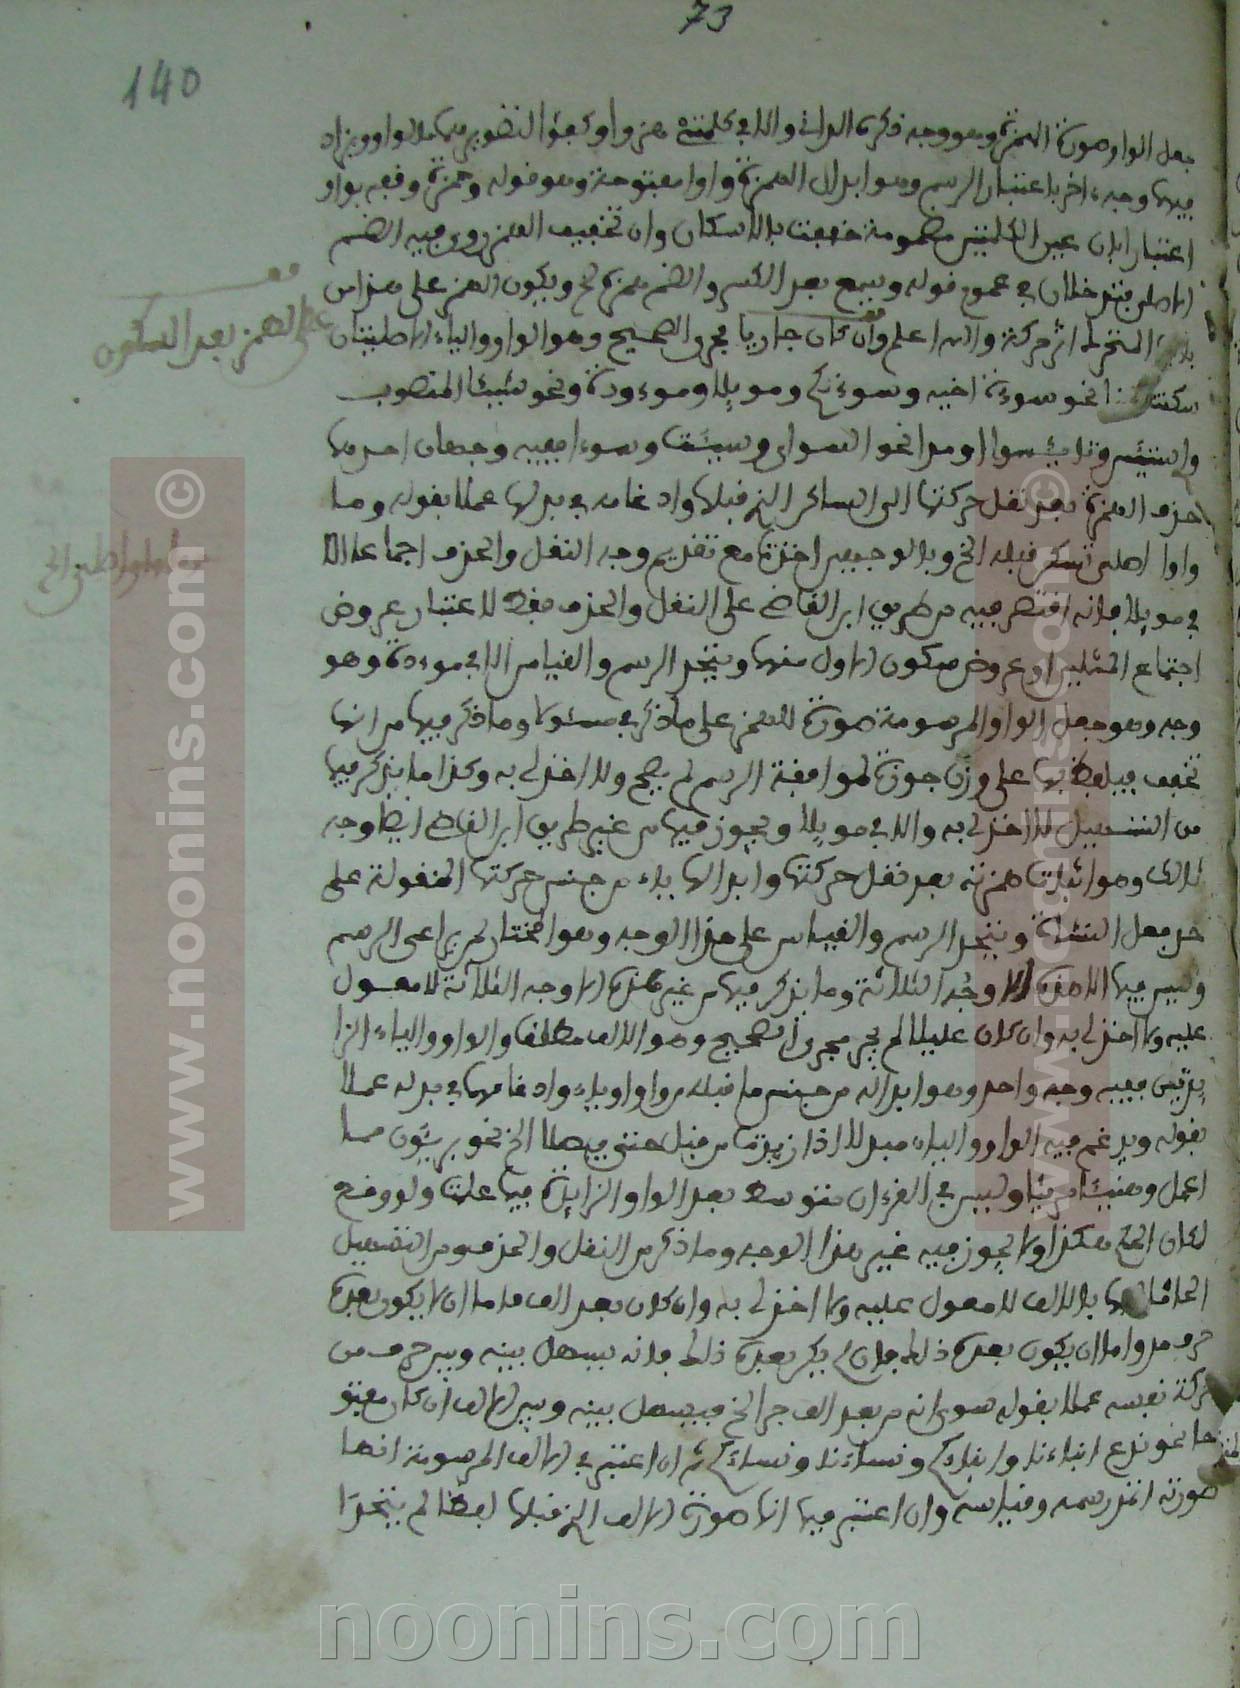 73
140
جعل الواو صورة الهمزة وهو وجه ذكره الداني والا في كلمتي هزوا وكفوا
فيها وجه ءاخر باعتبار الرسم وهو ابدال الهمزة واوا مفتوحة وهو قوله وحمزة وقفه بواو
اعتبارا بان عين الكلمتين مضمومة خففت بالاسكان وان تخفيف الهمز روعي فيه الضم
الاصلي فتدخلان في عموم قوله ويسمع بعد الكسر والضم همزه الخ ويكون الهمز على هذا من
المتحرك اثر حركة والله اعلم وان كان جاريا مجرى الصحيح وهو الواو والياء الاصليتان
نحو سوءة اخيه وسوءتكم وموئلا وموءودة ونحو شيئا المنصوب
نحو السوأى وسيئت وسوءا ففيه وجهان احدهما
حذف الهمزة بعد نقل حركتها الى الساكن الذي قبلها وادغامه في بدلها عملا بقوله وما
واوا اصلي تسكن قبله الخ وبالوجهين اخذنا مع تقديم وجه النقل والحذف اجماعا الا
في موئلا فانه اقتصر فيه من طريق ابن القاضي على النقل والحذف فقط لاعتبار عروض
اجتماع المثلين او عروض سكون الاول منهما ويتحد الرسم والقياس الا في موءدة وهو
وجه وهو جعل الواو المرسومة صورة للهمز على ما ذكر في مسئولا وما ذكر فيها من انها
تخفف فيلفظ بها على وزن جوزة لموافقة الرسم لم يصح ولا اخذ لي به وكذا ما يذكر فيها
من التسهيل لا اخذ لي به والا في موئلا ويجوز فيها من غير طريق ابن القاضي ايضا وجه
ثالث وهو اثبات همزته بعد نقل حركتها وابدالها ياء من جنس حركتها المنقولة على
حد فعل النشأة ويتحد الرسم والقياس على هذا الوجه وهو المختار لمن يراعي الرسم
وليس فيها الا هذه الاوجه الثلاثة وما يذكر فيها من غير هذه الاوجه الثلاثة لا معول
عليه ولا اخذ لي به وان كان عليلا لم يجر مجرى الصحيح وهو الالف مطلقا والواو والياء الزا
يدتين ففيه وجه واحد وهو ابداله من جنس ما قبله من واو او ياء وادغامها في بدله عملا
بقوله ويدغم فيه الواو والياء مبدلا اذا زيدتا من قبل حتى يفصلا الخ نحو بريئون مما
اعمل وهنيئا مريئا وليس في القرءان متوسط بعد الواو الزايدة فيما علمت ولو وقع
لكان الحكم هكذا ولا يجوز فيه غير هذا الوجه وما ذكر من النقل والحذف ومن التسهيل
بالالف لا معول عليه ولا اخذ لي به وان كان بعد الف فاما ان لا يكون بعده
حرف مد واما ان يكون بعده ذلك فان لم يكن بعده ذلك فانه يسهل بينه وبين حرف من
حركة نفسه عملا بقوله سوى انه من بعد الف جرى الخ فيسهل بينه وبين الالف ان كان مفتو
حا نحو ندع ابناءنا وابناءكم ونساءنا ونساءكم ثم ان اعتبر في الالف المرسومة انها
صورته اتحد رسمه وقياسه وان اعتبر فيها انها صورة الالف التي قبلها لفظا لم يتحدا
قف
على الهمز بعد السكون